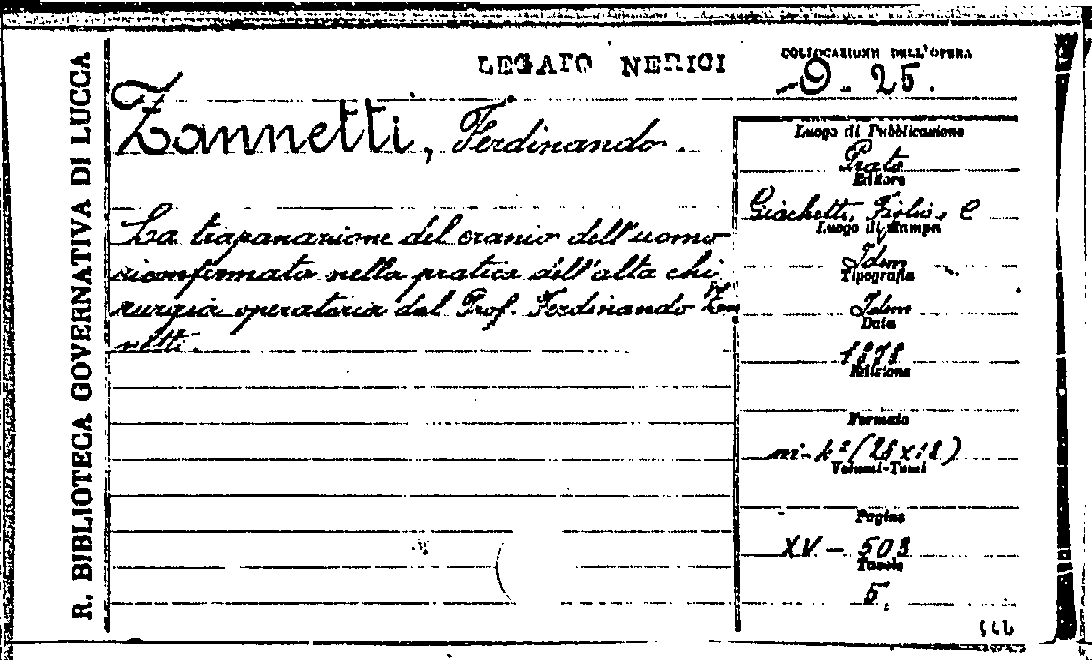 R. BIBLIOTECA GOVERNATIVA DI LUCCA
LEGATO NERICI
COLLOCAZIONE DELL'OPERA
O. 25.
Zannetti, Ferdinando.
La trapanazione del cranio dell'uomo
riconfermata nella pratica dell'alta chi
rurgia operatoria dal Prof. Ferdinando Zan
netti.
Luogo di Pubblicazione
Prato
Editore
Giachetti, Figlio, e C
Luogo di stampa
Idem
Tipografia
Idem
Data
1878
Edizione
Formato
in-4º (28x18)
Volumi-Tomi
Pagine
XV - 503
Tavole
5.